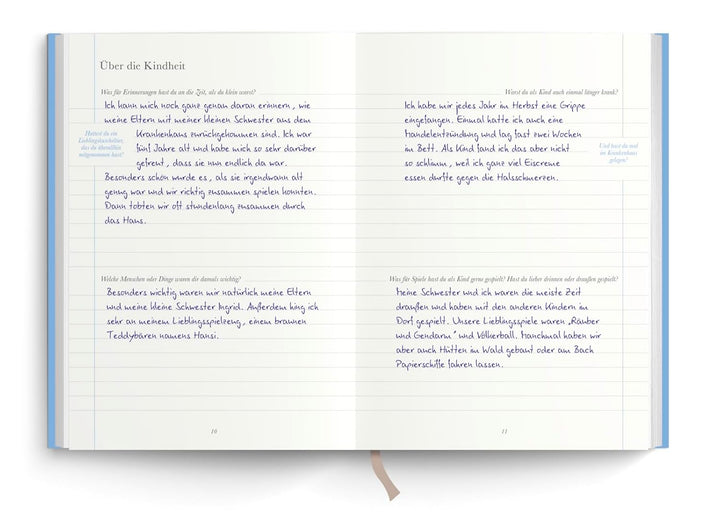 Über die Kindheit
Was für Erinnerungen hast du an die Zeit, als du klein warst?
Ich kann mich noch ganz genau daran erinnern, wie
meine Eltern mit meiner kleinen Schwester aus dem
Hattest du ein
Lieblingskuscheltier,
das du überallhin
mitgenommen hast?
Krankenhaus zurückgekommen sind. Ich war
fünf Jahre alt und habe mich so sehr darüber
gefreut, dass sie nun endlich da war.
Besonders schön wurde es, als sie irgendwann alt
genug war und wir richtig zusammen spielen konnten.
Dann tobten wir oft stundenlang zusammen durch
das Haus.
Welche Menschen oder Dinge waren dir damals wichtig?
Besonders wichtig waren mir natürlich meine Eltern
und meine kleine Schwester Ingrid. Außerdem hing ich
sehr an meinem Lieblingsspielzeug, einem braunen
Teddybären namens Hansi.
10
Warst du als Kind auch einmal länger krank?
Ich habe mir jedes Jahr im Herbst eine Grippe
eingefangen. Einmal hatte ich auch eine
Mandelentzündung und lag fast zwei Wochen
im Bett. Als Kind fand ich das aber nicht
so schlimm, weil ich ganz viel Eiscreme
essen durfte gegen die Halsschmerzen.
Und hast du mal
im Krankenhaus
gelegen?
Was für Spiele hast du als Kind gerne gespielt? Hast du lieber drinnen oder draußen gespielt?
Meine Schwester und ich waren die meiste Zeit
draußen und haben mit den anderen Kindern im
Dorf gespielt. Unsere Lieblingsspiele waren „Räuber
und Gendarm" und Völkerball. Manchmal haben wir
aber auch Hütten im Wald gebaut oder am Bach
Papierschiffe fahren lassen.
11